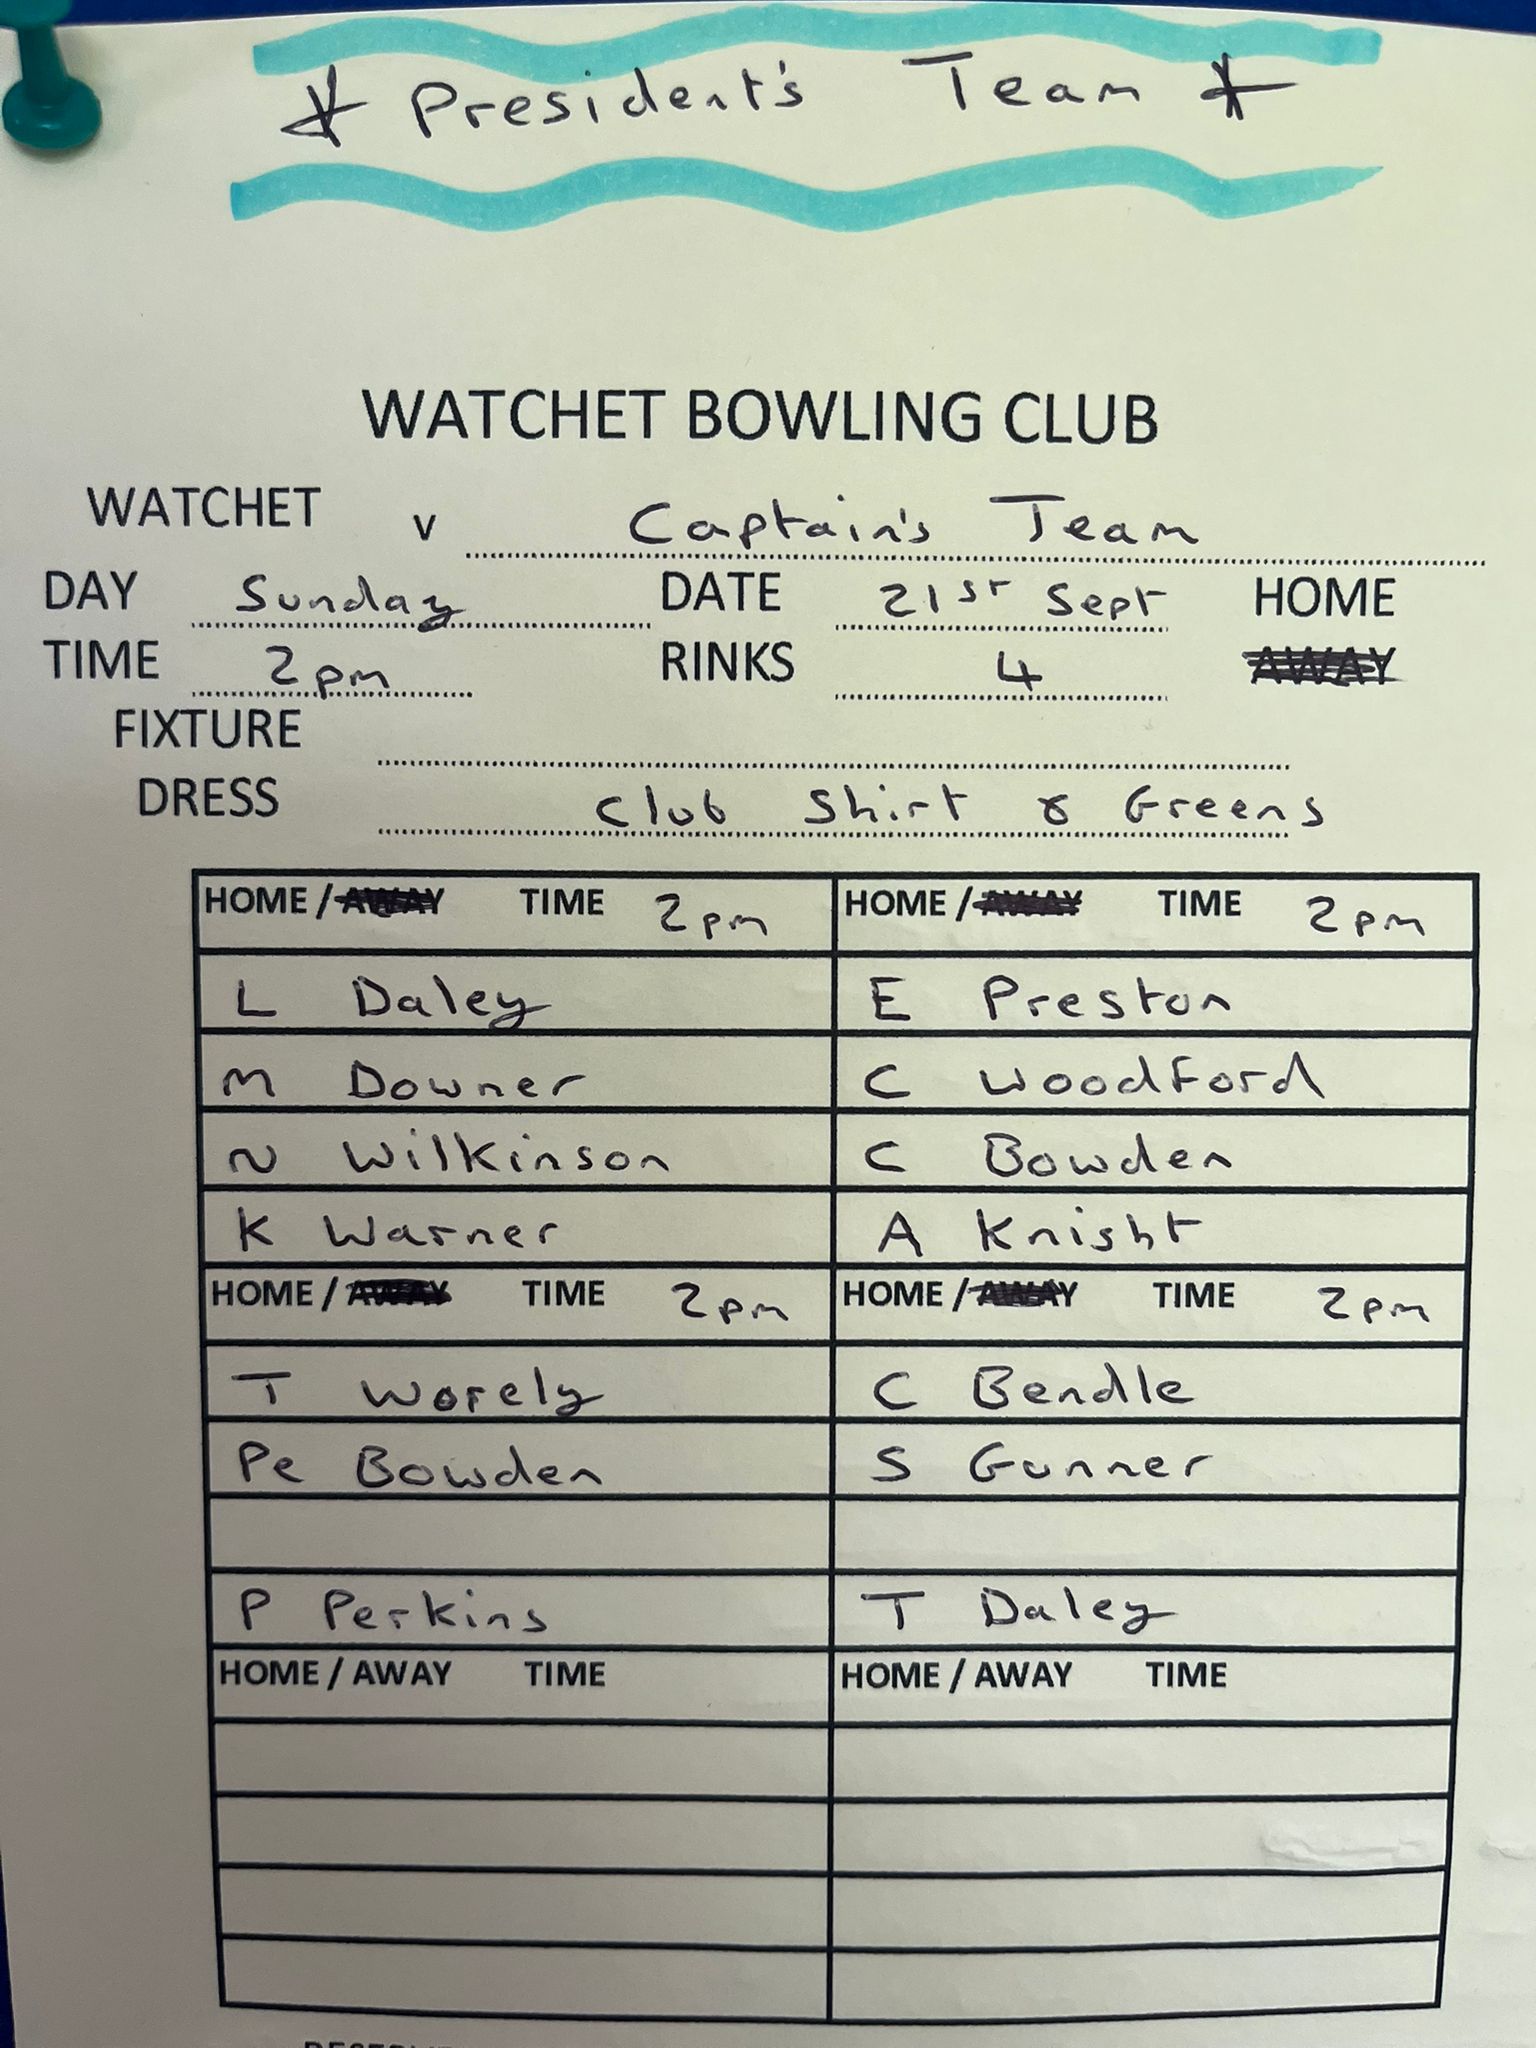 * President's Team *
WATCHET BOWLING CLUB
WATCHET v Captain's Team
DAY Sunday DATE 21st Sept HOME
TIME 2pm RINKS 4 AWAY
FIXTURE
DRESS Club Shirt & Greens
HOME / AWAY TIME 2pm HOME / AWAY TIME 2pm
L Daley E Preston
M Downer C Woodford
N Wilkinson C Bowden
K Warner A Knight
HOME / AWAY TIME 2pm HOME / AWAY TIME 2pm
T Worely C Bendle
Pe Bowden S Gunner
P Perkins T Daley
HOME / AWAY TIME HOME / AWAY TIME